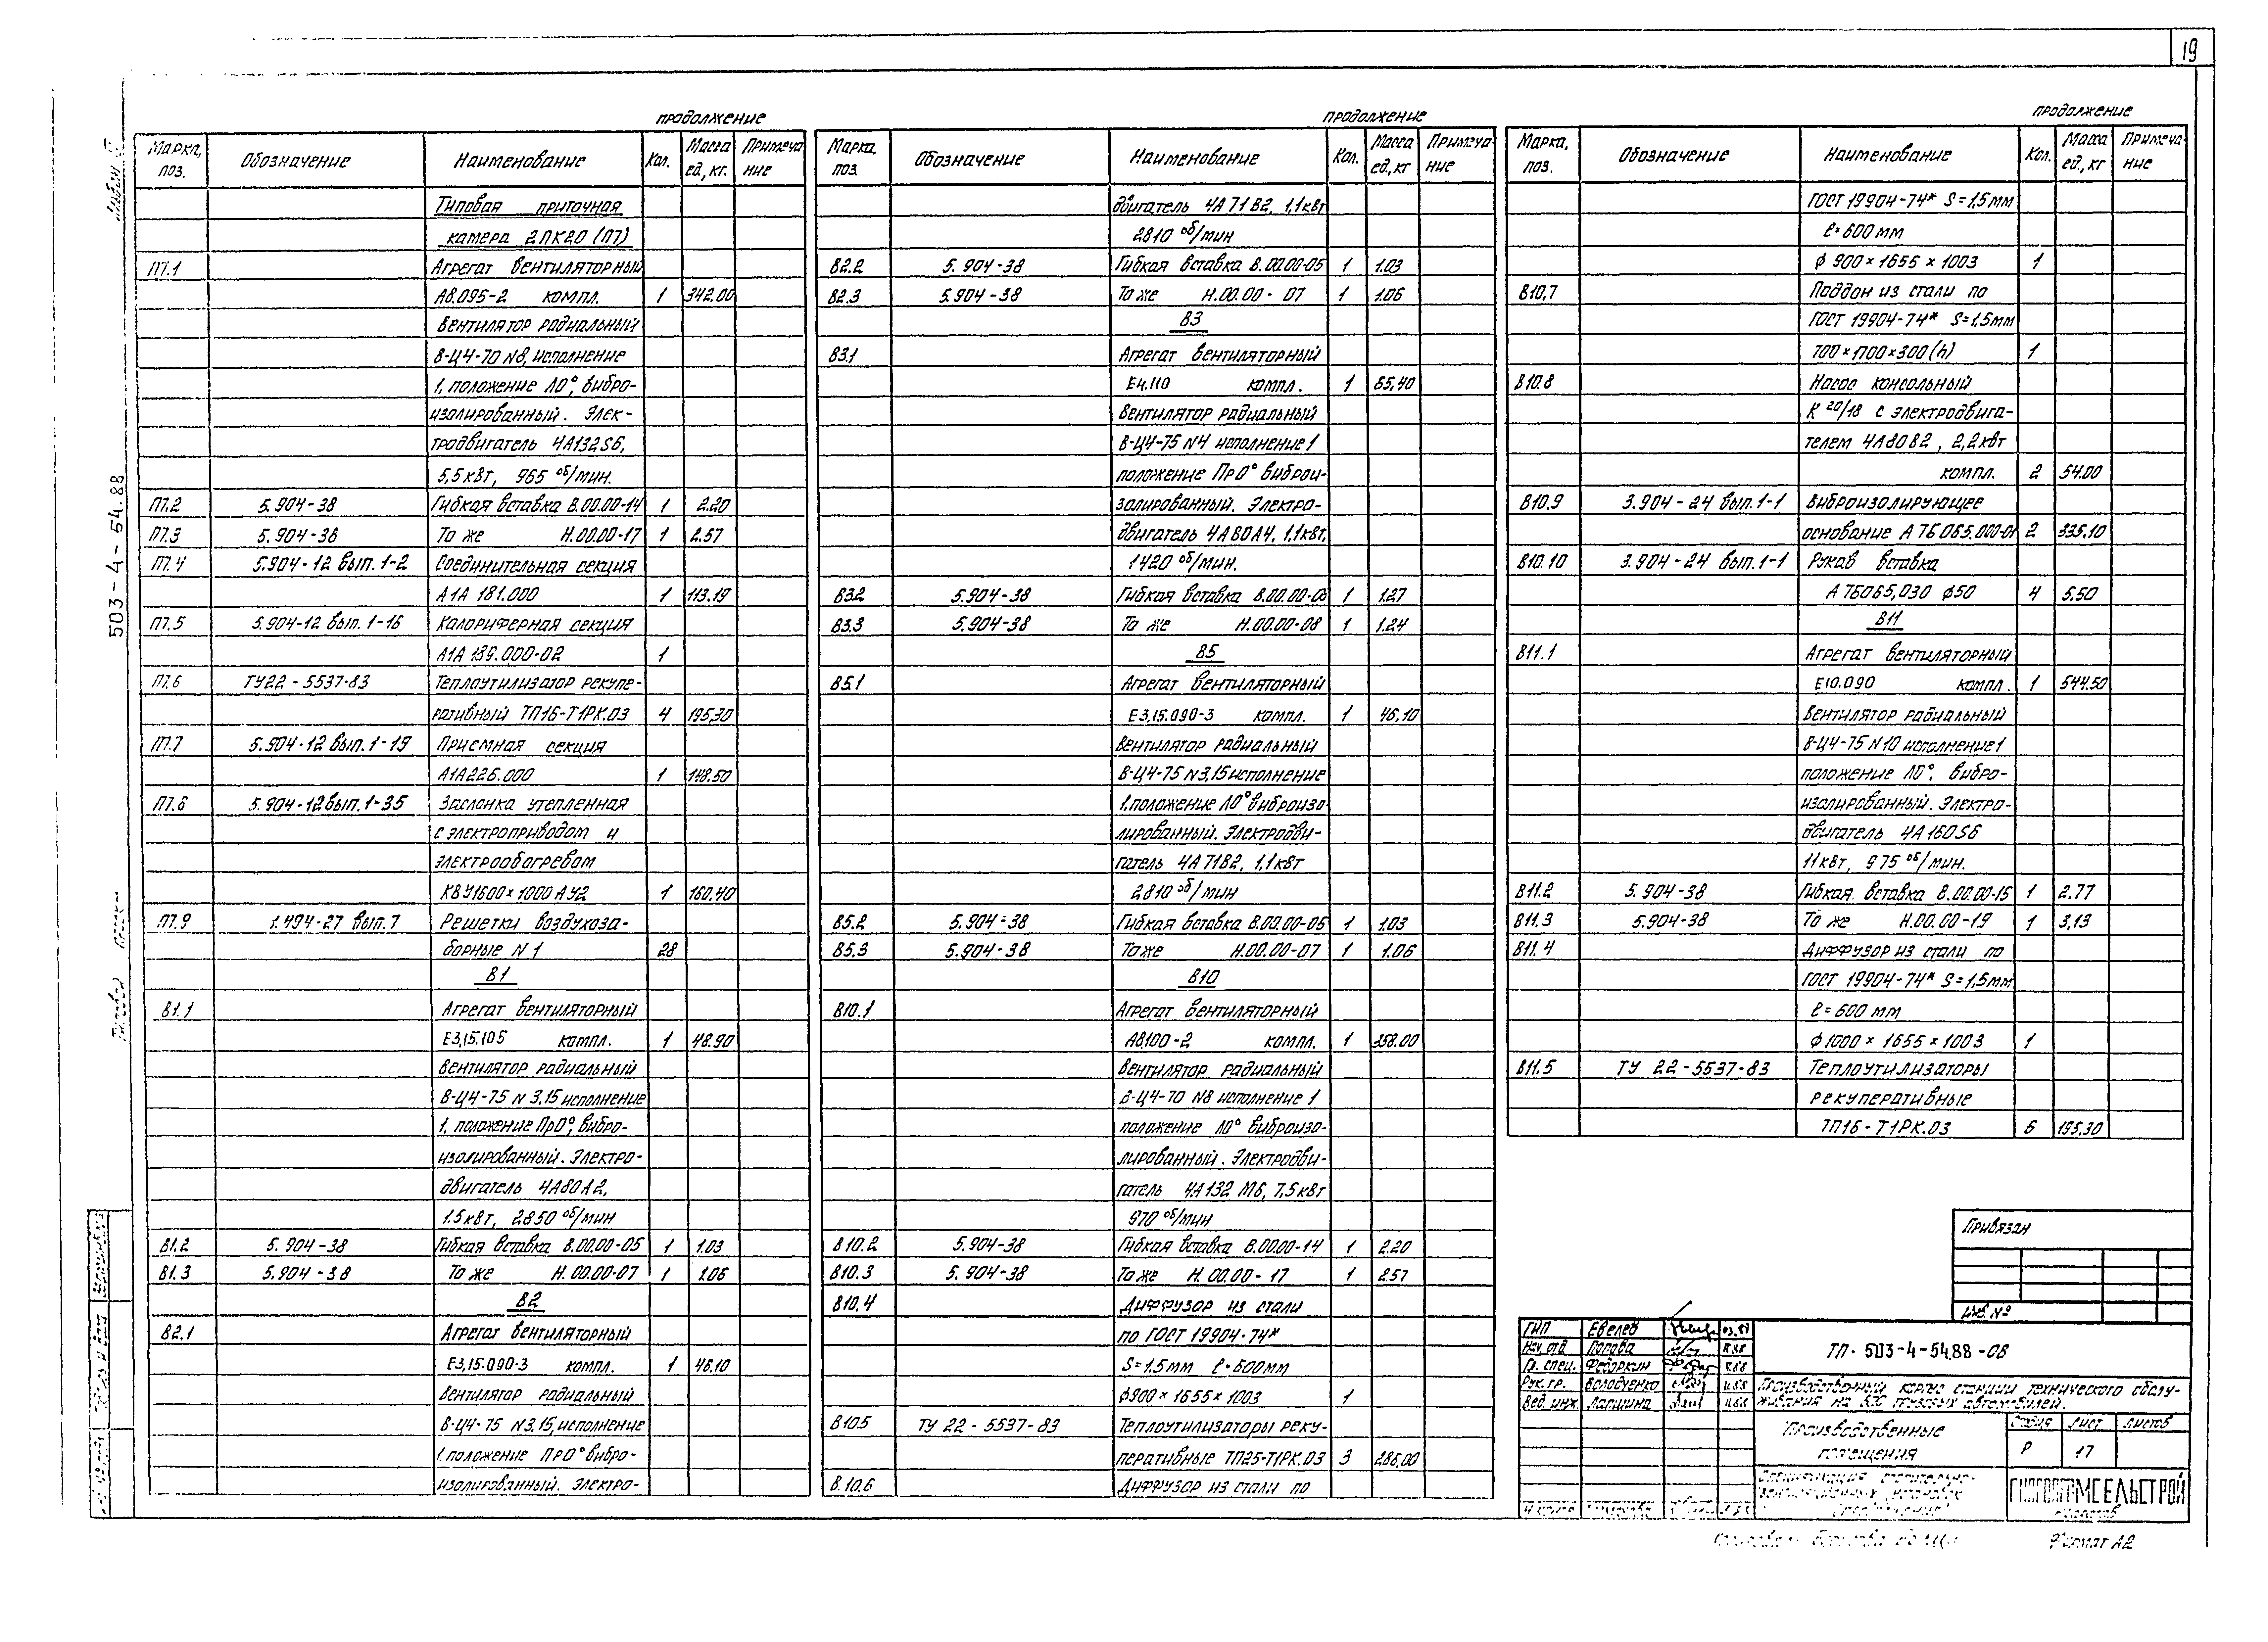 19
продолжение
Марка, поз. Обозначение Наименование Кол. Масса ед., кг. Примечание
Типовая приточная
камера 2ПК20 (П7)
П7.1 Агрегат вентиляторный
А8.095-2 компл. 1 342.00
Вентилятор радиальный
В-Ц4-70 N8, исполнение
1, положение Л0°, вибро-
изолированный. Элек-
тродвигатель 4А132S6,
5,5 кВт, 965 об/мин.
П7.2 5.904-38 Гибкая вставка В.00.00-14 1 2.20
П7.3 5.904-38 То же Н.00.00-17 1 2.57
П7.4 5.904-12 вып. 1-2 Соединительная секция
А1А 181.000 1 113.19
П7.5 5.904-12 вып. 1-16 Калориферная секция
А1А 189.000-02 1
П7.6 ТУ22-5537-83 Теплоутилизатор рекупе-
ративный ТП16-Т1РК.03 4 195,30
П7.7 5.904-12 вып. 1-19 Приемная секция
А1А226.000 1 148.50
П7.8 5.904-12 вып. 1-35 Заслонка утепленная
с электроприводом и
электрообогревом
КВУ1600×1000 АУ2 1 160.40
П7.9 1.494-27 вып. 7 Решетки воздухоза-
борные N 1 28
В1
В1.1 Агрегат вентиляторный
Е3,15.105 компл. 1 48.90
Вентилятор радиальный
В-Ц4-75 N 3,15 исполнение
1, положение Пр0°, вибро-
изолированный. Электро-
двигатель 4А80А2,
1.5 кВт, 2850 об/мин
В1.2 5.904-38 Гибкая вставка В.00.00-05 1 1.03
В1.3 5.904-38 То же Н.00.00-07 1 1.06
В2
В2.1 Агрегат вентиляторный
Е3,15.090-3 компл. 1 46.10
Вентилятор радиальный
В-Ц4-75 N3.15, исполнение
1, положение Пр0° вибро-
изолированный. Электро-
продолжение
Марка, поз. Обозначение Наименование Кол. Масса ед., кг Примечание
двигатель 4А71В2, 1,1кВт
2810 об/мин
В2.2 5.904-38 Гибкая вставка В.00.00-05 1 1.03
В2.3 5.904-38 То же Н.00.00-07 1 1.06
В3
В3.1 Агрегат вентиляторный
Е4.110 компл. 1 65,40
Вентилятор радиальный
В-Ц4-75 N4 исполнение 1
положение Пр0° виброи-
золированный. Электро-
двигатель 4А80А4, 1,1кВт,
1420 об/мин.
В3.2 5.904-38 Гибкая вставка В.00.00-06 1 1.27
В3.3 5.904-38 То же Н.00.00-08 1 1.24
В5
В5.1 Агрегат вентиляторный
Е3,15.090-3 компл. 1 46.10
Вентилятор радиальный
В-Ц4-75 N3,15 исполнение
1, положение Л0° виброизо-
лированный. Электродви-
гатель 4А71В2, 1,1кВт
2810 об/мин
В5.2 5.904-38 Гибкая вставка В.00.00-05 1 1.03
В5.3 5.904-38 То же Н.00.00-07 1 1.06
В10
В10.1 Агрегат вентиляторный
А8,100-2 компл. 1 358.00
Вентилятор радиальный
В-Ц4-70 N8 исполнение 1
положение Л0° виброизо-
лированный. Электродви-
гатель 4А132М6, 7,5 кВт
970 об/мин
В10.2 5.904-38 Гибкая вставка В.00.00-14 1 2.20
В10.3 5.904-38 То же Н.00.00-17 1 2.57
В10.4 Диффузор из стали
по ГОСТ 19904-74*
S=1.5мм ℓ=600мм
ф900×1655×1003 1
В10.5 ТУ 22-5537-83 Теплоутилизаторы реку-
перативные ТП25-Т1РК.03 3 286,00
В.10.6 Диффузор из стали по
продолжение
Марка, поз. Обозначение Наименование Кол. Масса ед., кг Примечание
ГОСТ 19904-74* S=1,5мм
ℓ=600мм
ф 900×1655×1003 1
В10.7 Поддон из стали по
ГОСТ 19904-74* S=1,5мм
700×1700×300(h) 1
В10.8 Насос консольный
К 20/18 с электродвига-
телем 4А80В2, 2,2кВт
компл. 2 54.00
В10.9 3.904-24 вып.1-1 Виброизолирующее
основание А7Б065.000-01 2 335.10
В10.10 3.904-24 вып.1-1 Рукав вставка
А7Б065.030 ф50 4 5.50
В11
В11.1 Агрегат вентиляторный
Е10.090 компл. 1 544.50
Вентилятор радиальный
В-Ц4-75 N10 исполнение 1
положение Л0°, вибро-
изолированный. Электро-
двигатель 4А160S6
11 кВт, 975 об/мин.
В11.2 5.904-38 Гибкая вставка В.00.00-15 1 2.77
В11.3 5.904-38 То же Н.00.00-19 1 3,13
В11.4 Диффузор из стали по
ГОСТ 19904-74* S=1,5мм
ℓ=600 мм
ф1000×1655×1003 1
В11.5 ТУ 22-5537-83 Теплоутилизаторы
рекуперативные
ТП16-Т1РК.03 6 195.30
Привязан
Инв. №
503-4-54.88
ГИП Евелев 03.88
Нач. отд. Попова
Гл. спец. Федоркин
Рук. гр. Володченко
Вед. инж. Лапшина
ТП-503-4-54.88-ОВ
Производственный корпус станции технического обслу-
живания на грузовых автомобилей.
Производственные
помещения
Стадия Лист Листов
Р 17
Спецификация отопительно-
вентиляционных установок
(продолжение)
ГИПРОПРОМСЕЛЬСТРОЙ
Саратов
Формат А2